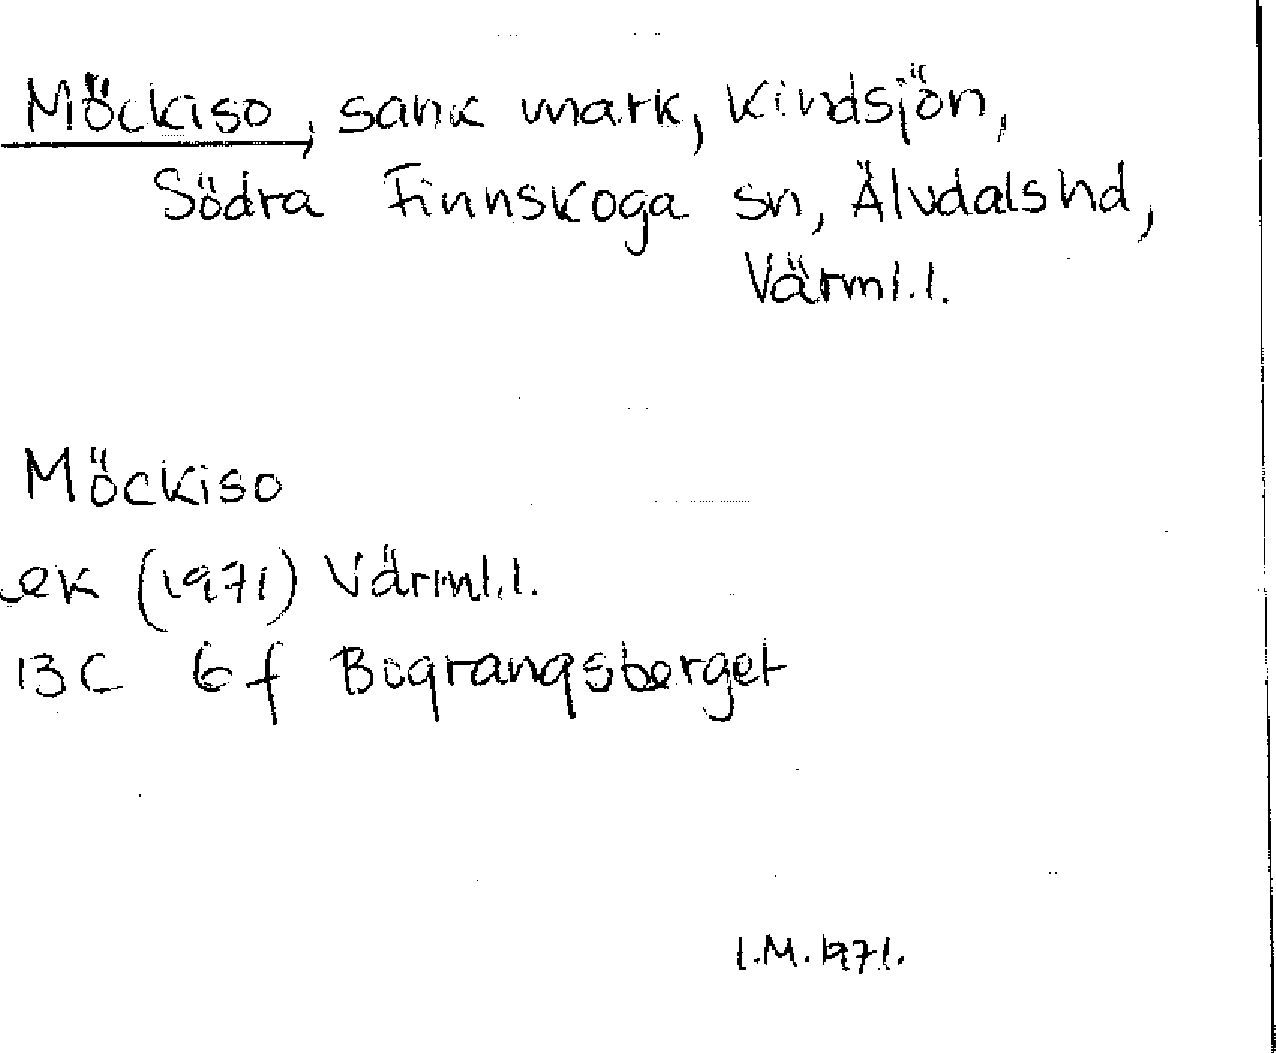 Möckiso, sank mark, Kindsjön,
Södra Finnskoga sn, Älvdals hd,
Värml.l.
Möckiso
ek (1971) Värml.l.
13C 6f Bograngsberget
I.M.1971.